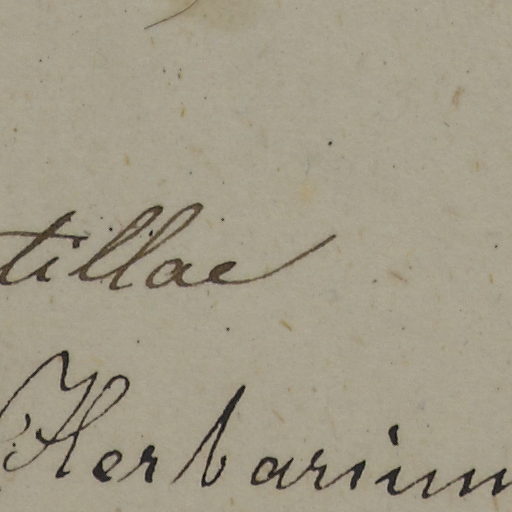 tillae
Herbarium